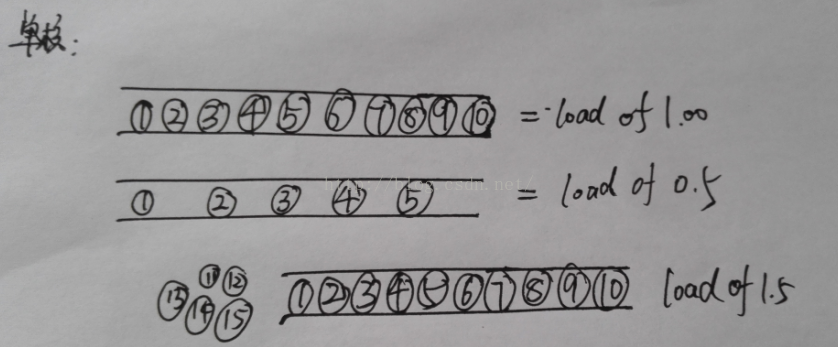 单核:
①②③④⑤⑥⑦⑧⑨⑩ = load of 1.00
① ② ③ ④ ⑤ = load of 0.5
⑪ ⑫
⑬ ⑭ ⑮ ①②③④⑤⑥⑦⑧⑨⑩ load of 1.5